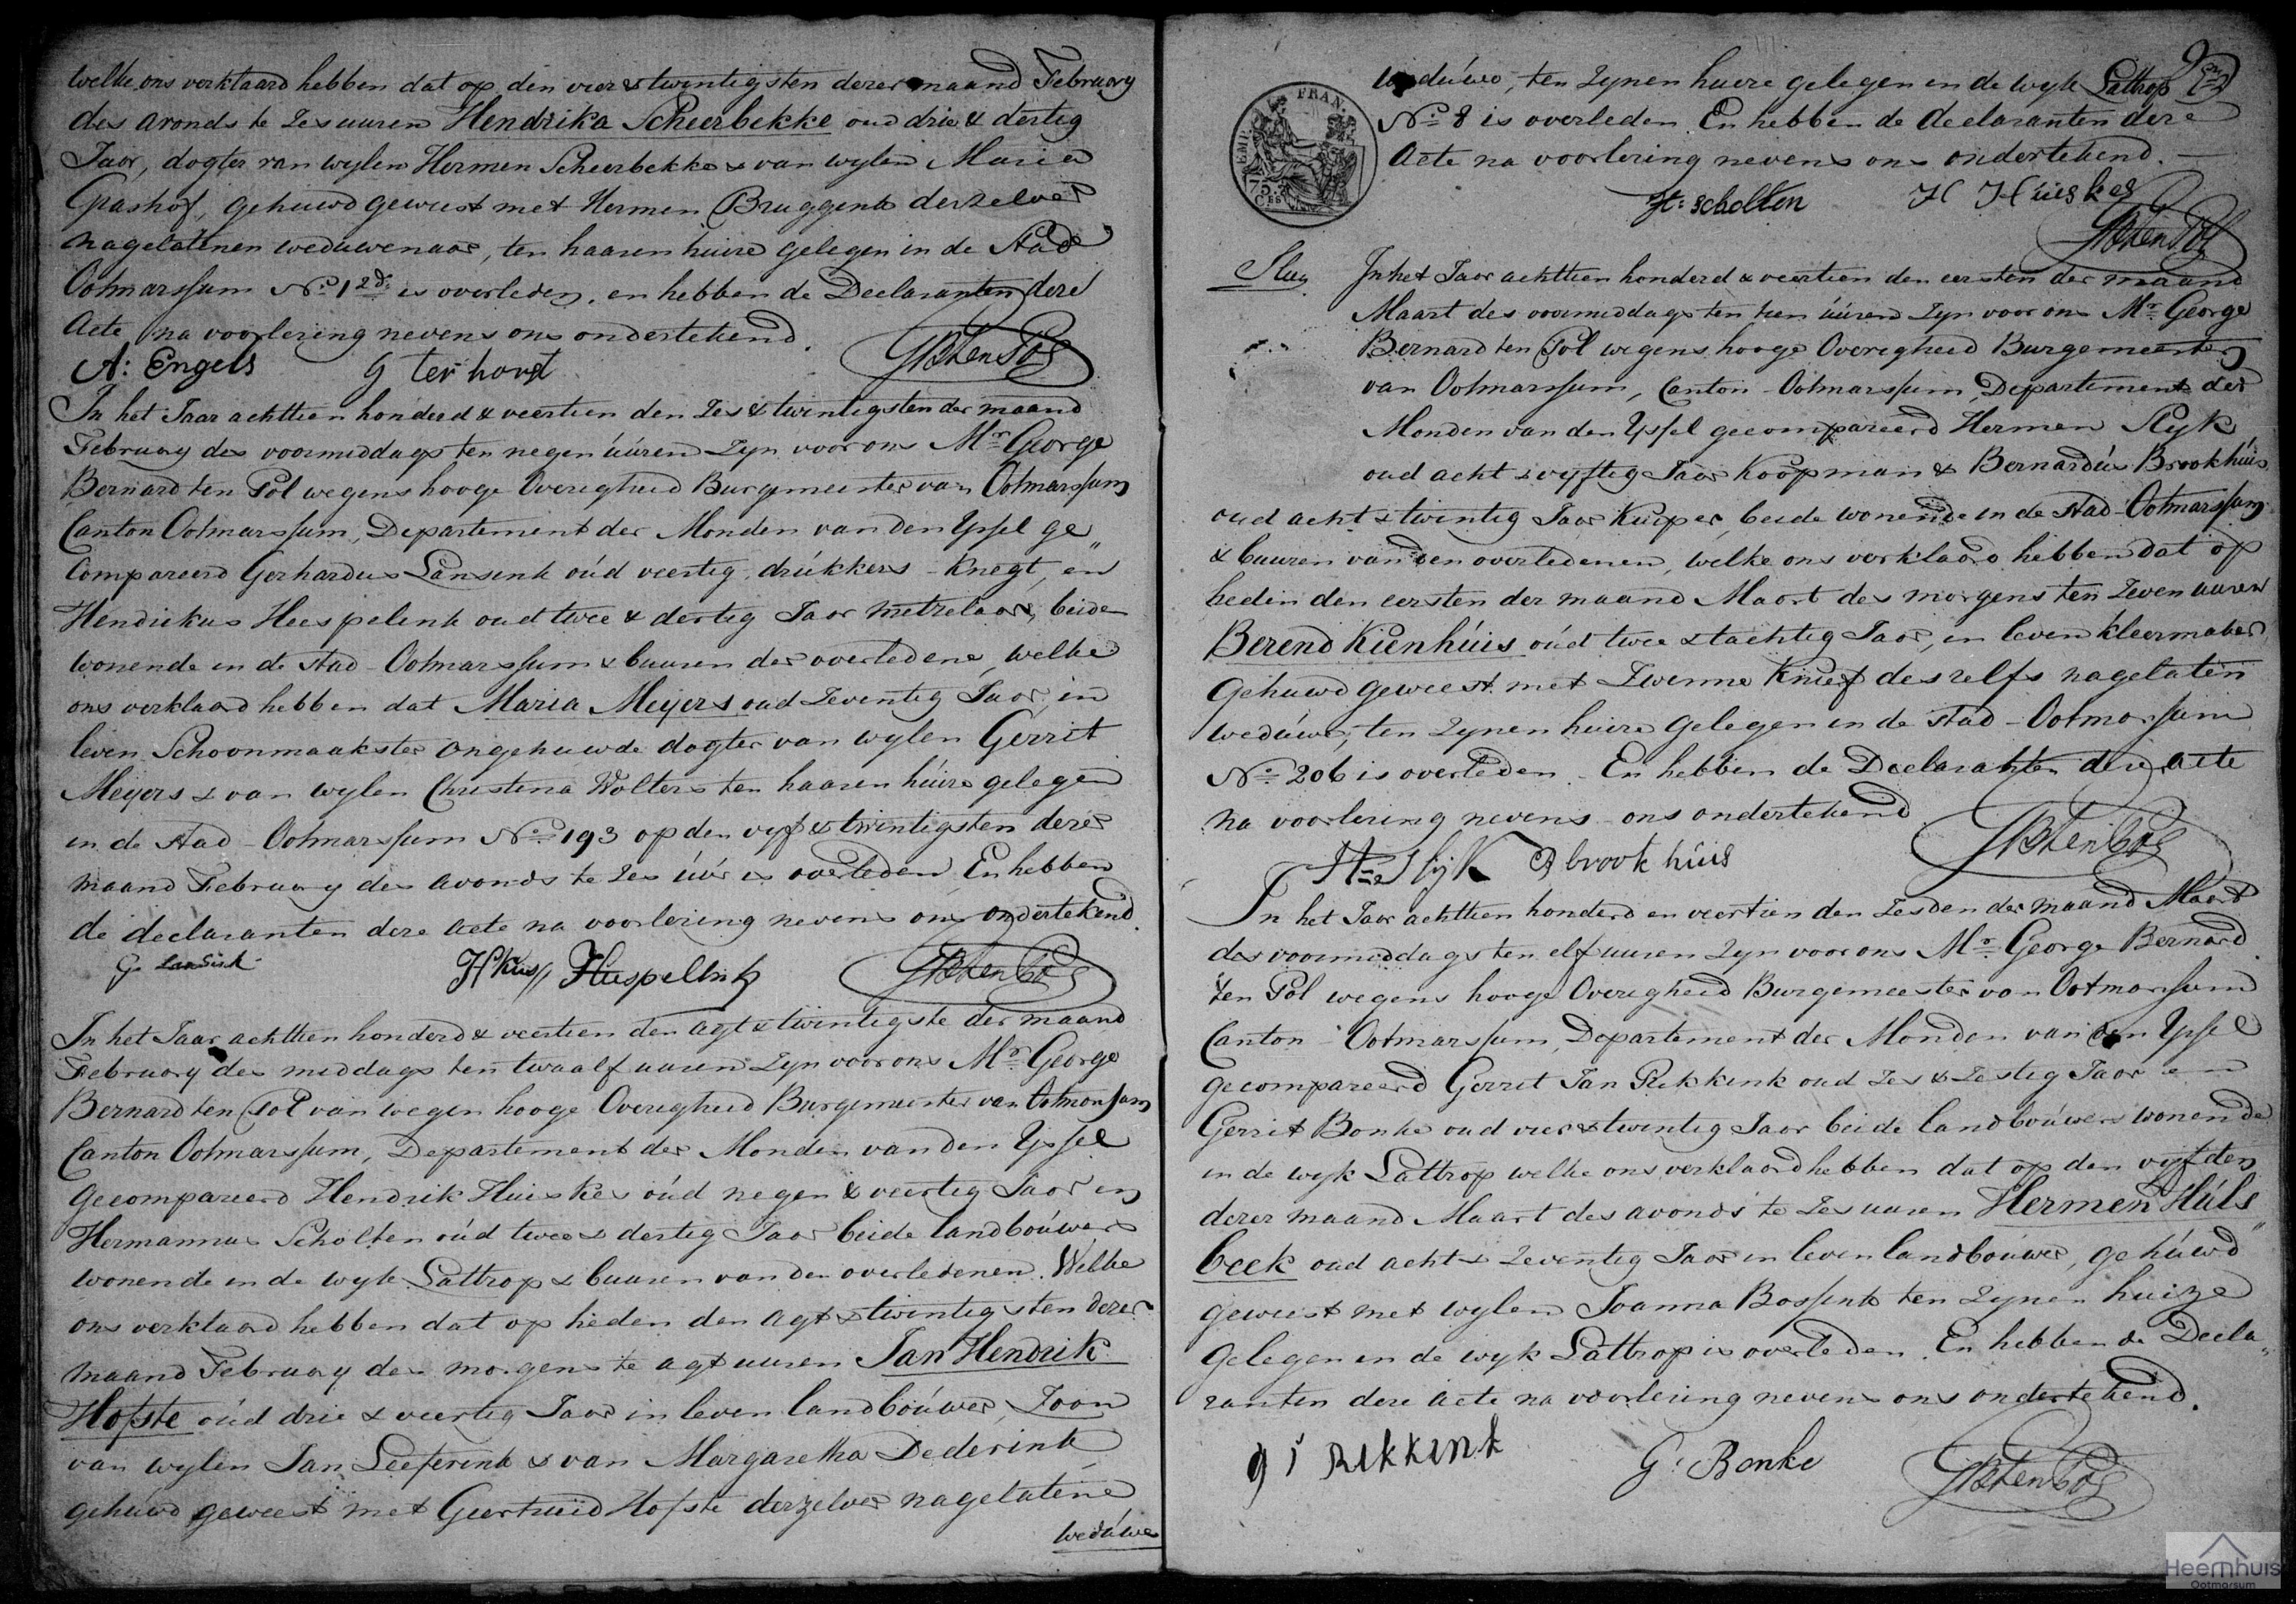 welke ons verklaard hebben dat op den vier & twintigsten dezer maand February
des avonds te zes uuren Hendrika Scheerbekke oud drie & dertig
Jaar, dogter van wylen Hermen Scheerbekke & van wylen Maria
Gashof, gehuwd geweest met Hermen Bruggink deszelver
nagelatenen weduwenaar, ten haaren huize gelegen in de Stad
Ootmarssum No. 12 d. is overleden. en hebben de Declaranten deze
Acte na voorlezing nevens ons ondertekend.
A: Engels G ter horst GB ten Pol
In het Jaar achttien honderd & veertien den zes & twintigsten der maand
February des voormiddags ten negen uúren zyn voor ons Mr. George
Bernard ten Pol wegens hooge Overigheid Burgemeester van Ootmarssum
Canton Ootmarssum, Departement der Monden van den Yssel ge„
compareerd Gerhardus Lansink oúd veertig, drúkkers-knegt, en
Hendrikus Heespelink oud twee & dertig Jaar metzelaar, beide
wonende in de stad Ootmarssum & buuren der overledene, welke
ons verklaard hebben dat Maria Meyers oud zeventig Jaar, in
leven Schoonmaakster ongehuwde dogter van wylen Gerrit
Meyers & van wylen Christina Wolters ten haaren húize gelegen
in de stad Ootmarssum No. 193 op den vyf & twintigsten dezer
maand February des avonds te zes úúr is overleden En hebben
de declaranten deze acte na voorlezing nevens ons ondertekend.
G. Lansink Hkus// Huspelink GB ten Pol
In het Jaar achttien honderd & veertien den agt & twintigste der maand
February des middags ten twaalf uuren zyn voor ons Mr. George
Bernard ten Pol van wegen hooge Overigheid Burgemeester van Ootmarssum
Canton Ootmarssum, Departement der Monden van den Yssel
gecompareerd Hendrik Huiskes oúd negen & veertig Jaar en
Hermannus Scholten oúd twee & dertig Jaar beide landboúwers
wonende in de wyk Lattrop & buuren van den overledenen. Welke
ons verklaard hebben dat op heden den agt & twintigsten dezer
maand February des morgens te agt uuren Jan Hendrik
Hofste oúd drie & veertig Jaar in leven landboúwer, Zoon
van wylen Jan Leeferink & van Margaretha Dederink
gehúwd geweest met Geertruid Hofste deszelver nagelatene
wedúwe
wedúwe, ten zynen huize gelegen in de wyk Lattrop
No. 8 is overleden. En hebben de declaranten deze
acte na voorlezing nevens ons ondertekend.
Hs scholten H Húiskes
GB ten Pol
In het Jaar achttien honderd & veertien den eersten der maand
Maart des voormiddags ten tien úúren zyn voor ons Mr. George
Bernard ten Pol wegens hooge Overigheid Burgemeester
van Ootmarssum, Canton Ootmarssum, Departement der
Monden van den Yssel gecompareerd Hermen Slyk
oud acht & vyftig Jaar Koopman & Bernardús Brookhúis
oud acht & twintig Jaar Kuiper, beide wonende in de stad Ootmarssum
& buuren van den overledenen, welke ons verklaard hebben dat op
heden den eersten der maand Maart des morgens ten zeven uuren
Berend Kienhúis oúd twee & tachtig Jaar, in leven kleermaker
gehuwd geweest met Zwenne Knief deszelfs nagelaten
wedúwe, ten zynen huize gelegen in de stad Ootmarssum
No. 206 is overleden. En hebben de Declaranten deze acte
na voorlezing nevens ons ondertekend
Hs Slijk B brookhúis GB ten Pol
In het Jaar achttien honderd en veertien den zesden der maand Maart
des voormiddags ten elf uuren zyn voor ons Mr. George Bernard
ten Pol wegens hooge Overigheid Burgemeester van Ootmarssum
Canton Ootmarssum, Departement der Monden van den Yssel
gecompareerd Gerret Jan Rekkink oud zes & zestig Jaar en
Gerrit Bonke oud vier & twintig Jaar beide landboúwers wonende
in de wyk Lattrop welke ons verklaard hebben dat op den vyfden
dezer maand Maart des avonds te zes uuren Hermen Húls„
beek oud acht & zeventig Jaar in leven landboúwer, gehúwd
geweest met wylen Joanna Bossink ten zynen huize
gelegen in de wyk Lattrop is overleden. En hebben de Decla„
ranten deze acte na voorlezing nevens ons ondertekend.
g j Rekkink G: Bonke GB ten Pol
Heemhuis
Ootmarsum